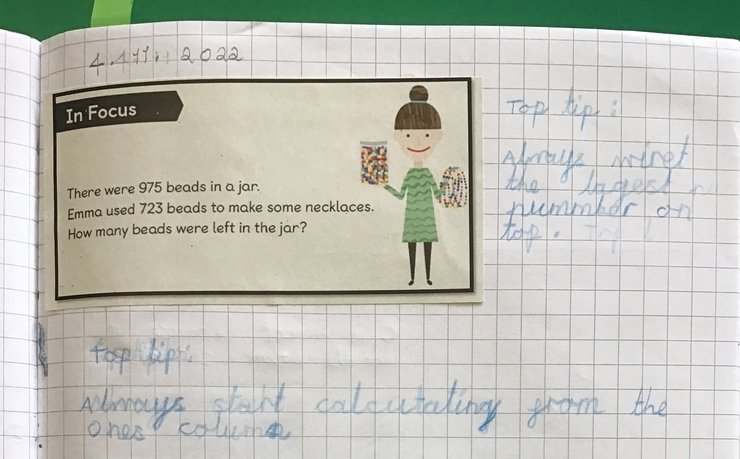 4. 11. 2022
In Focus
There were 975 beads in a jar.
Emma used 723 beads to make some necklaces.
How many beads were left in the jar?
Top tip:
Always
the lagest
nummber on
top.
Top tip:
Always start calculating from the
ones column